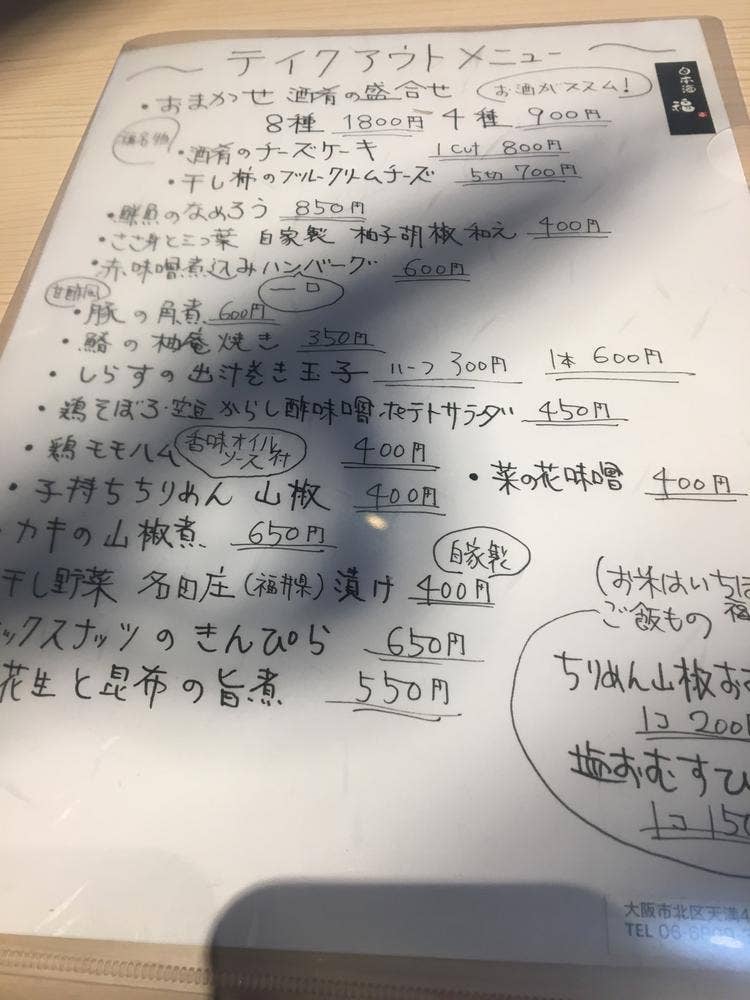 テイクアウトメニュー
・おまかせ 酒肴の盛合せ お酒がススム!
8種 1800円 4種 900円
・酒肴のチーズケーキ 1cut 800円
・干し柿のブルークリームチーズ 5切 700円
・鮮魚のなめろう 850円
・ささ身と三つ葉 自家製 柚子胡椒和え 400円
・赤味噌煮込みハンバーグ 600円
一口
甘酢風
・豚の角煮 600円
・鰆の柚庵焼き 350円
・しらすの出汁巻き玉子 ハーフ 300円 1本 600円
・鶏そぼろ・空豆 からし酢味噌ポテトサラダ 450円
・鶏モモハム 香味オイルソース付 400円
・菜の花味噌 400円
・子持ちちりめん 山椒 400円
・カキの山椒煮 650円
干し野菜 名田庄(福井県)漬け 400円 自家製
ックスナッツのきんぴら 650円
花生と昆布の旨煮 550円
(お米はいちほ
ご飯もの 福
ちりめん山椒お
1コ 200円
塩おむすび
1コ 150
日本酒 福
大阪市北区天満4
TEL 06-6